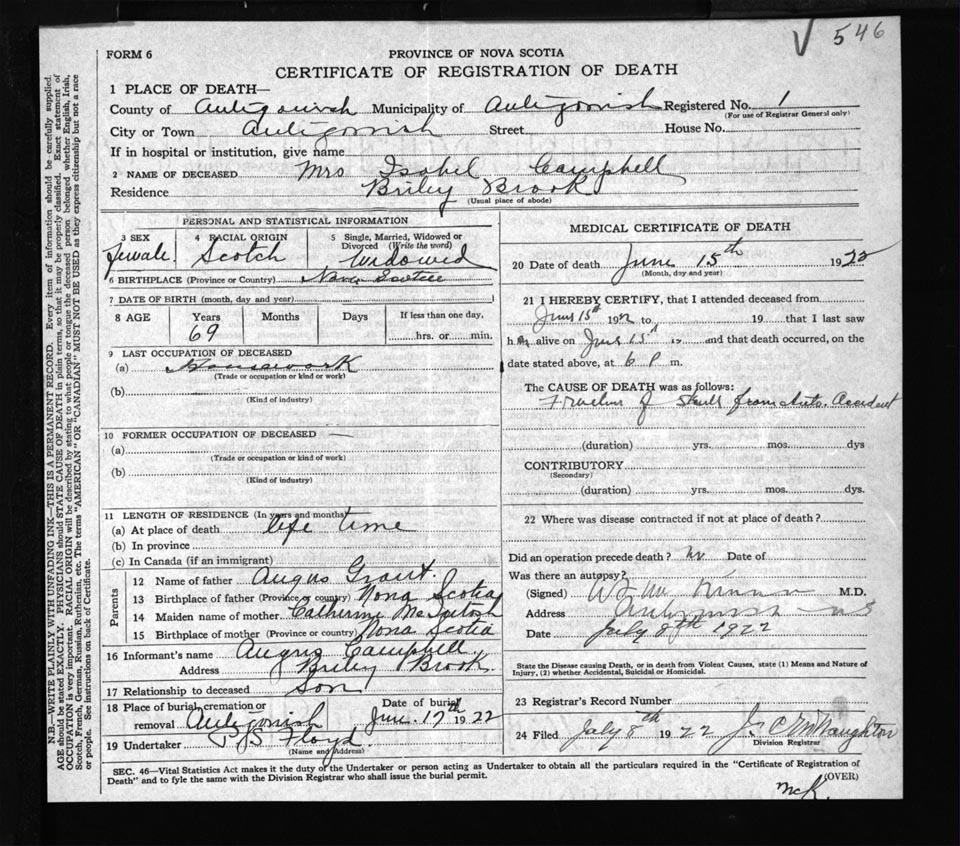 546
FORM 6
PROVINCE OF NOVA SCOTIA
CERTIFICATE OF REGISTRATION OF DEATH
1 PLACE OF DEATH—
County of Antigonish Municipality of Antigonish Registered No. 1
(For use of Registrar General only)
City or Town Antigonish Street House No.
If in hospital or institution, give name
2 NAME OF DECEASED Mrs Isabel Campbell
Residence Briley Brook
(Usual place of abode)
PERSONAL AND STATISTICAL INFORMATION
3 SEX 4 RACIAL ORIGIN 5 Single, Married, Widowed or Divorced (Write the word)
female. Scotch Widowed
6 BIRTHPLACE (Province or Country) Nova Scotia
7 DATE OF BIRTH (month, day and year)
8 AGE Years Months Days If less than one day,
69 hrs. or min.
9 LAST OCCUPATION OF DECEASED
(a) Housework
(Trade or occupation or kind or work)
(b)
(Kind of industry)
10 FORMER OCCUPATION OF DECEASED —
(a)
(Trade or occupation or kind of work)
(b)
(Kind of industry)
11 LENGTH OF RESIDENCE (In years and months)
(a) At place of death life time
(b) In province
(c) In Canada (if an immigrant)
Parents
12 Name of father Angus Grant.
13 Birthplace of father (Province or country) Nova Scotia
14 Maiden name of mother Catherine McIntosh
15 Birthplace of mother (Province or country) Nova Scotia
16 Informant's name Angus Campbell
Address Briley Brook.
17 Relationship to deceased Son
18 Place of burial, cremation or removal Antigonish Date of burial June 17th 1922
19 Undertaker P.S Floyd.
(Name and Address)
MEDICAL CERTIFICATE OF DEATH
20 Date of death June 15th 1922
(Month, day and year)
21 I HEREBY CERTIFY, that I attended deceased from
June 15th 1922 to 19 that I last saw
h alive on June 15th and that death occurred, on the
date stated above, at 6 P m.
The CAUSE OF DEATH was as follows:
Fracture of Skull from Auto. Accident
(duration) yrs. mos. dys
CONTRIBUTORY
(Secondary)
(duration) yrs. mos. dys.
22 Where was disease contracted if not at place of death?
Did an operation precede death? No Date of
Was there an autopsy?
(Signed) M.D.
Address Antigonish N S
Date July 8th 1922
State the Disease causing Death, or in death from Violent Causes, state (1) Means and Nature of
Injury, (2) whether Accidental, Suicidal or Homicidal.
23 Registrar's Record Number
24 Filed July 8th 1922 McNaughton
Division Registrar
SEC. 46—Vital Statistics Act makes it the duty of the Undertaker or person acting as Undertaker to obtain all the particulars required in the "Certificate of Registration of
Death" and to fyle the same with the Division Registrar who shall issue the burial permit. (OVER)
McK.
N.B.—WRITE PLAINLY WITH UNFADING INK—THIS IS A PERMANENT RECORD. Every item of information should be carefully supplied.
AGE should be stated EXACTLY. PHYSICIANS should STATE CAUSE OF DEATH in plain terms, so that it may be properly classified. Exact statement of
OCCUPATION is very important. RACIAL ORIGIN will be described by stating to what people or tongue the deceased person belonged whether English, Irish,
Scotch, French, German, Russian, Ruthenian, etc. The terms "AMERICAN" OR "CANADIAN" MUST NOT BE USED as they express citizenship but not a race
or people. See instructions on back of Certificate.